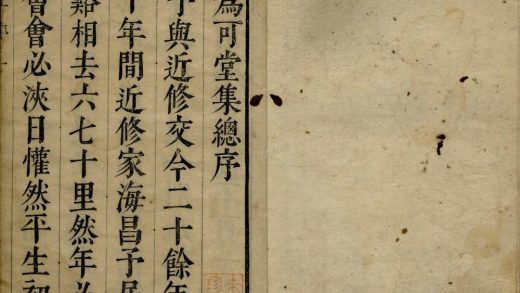 為可堂集總序
予與近修交今二十餘年
十年間近修家海昌予居
谿相去六七十里然年
會必浹日懽然平生初